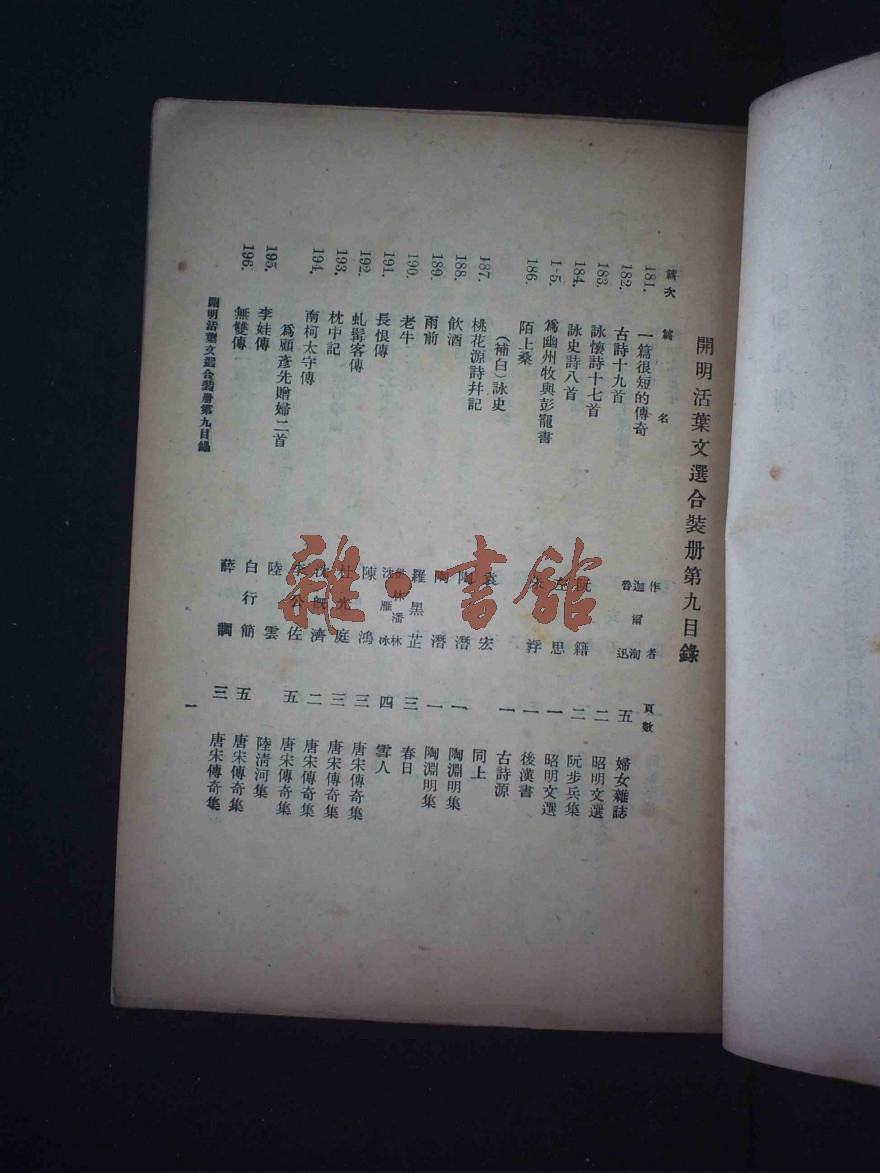 開明活葉文選合裝册第九目錄
篇次 篇名 作者 頁數
181. 一篇很短的傳奇 迦爾洵 魯迅 五 婦女雜誌
182. 古詩十九首 二 昭明文選
183. 詠懷詩十七首 阮籍 二 阮步兵集
184. 詠史詩八首 左思 一 昭明文選
1-5. 爲幽州牧與彭寵書 朱浮 一 後漢書
186. 陌上桑 一 古詩源
(補白)詠史 袁宏 同上
187. 桃花源詩幷記 陶潛 一 陶淵明集
188. 飲酒 陶潛 一 陶淵明集
189. 雨前 羅黑芷 三 春日
190. 老牛 林潘林 沈雁冰 四 雪人
191. 長恨傳 陳鴻 三 唐宋傳奇集
192. 虬髯客傳 杜光庭 三 唐宋傳奇集
193. 枕中記 沈旣濟 二 唐宋傳奇集
194. 南柯太守傳 李公佐 五 唐宋傳奇集
爲顧彥先贈婦二首 陸雲 陸淸河集
195. 李娃傳 白行簡 五 唐宋傳奇集
196. 無雙傳 薛調 三 唐宋傳奇集
開明活葉文選合裝册第九目錄 一
雜·書館